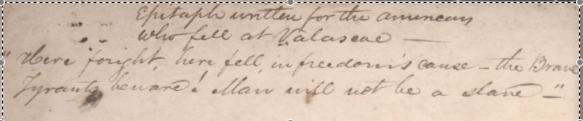 Epitaph written for the americans
who fell at Valascae —
"Here fought, here fell, in freedom's cause — the Brave
Tyrants beware! Man will not be a slave —"